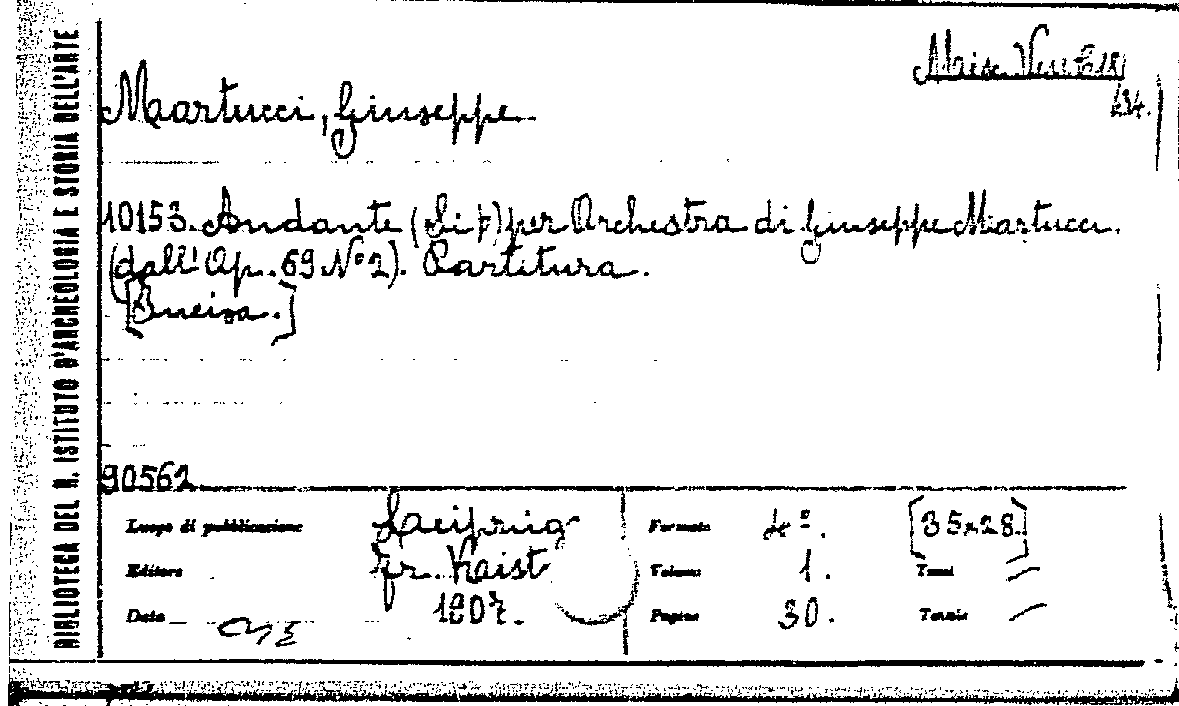 BIBLIOTECA DEL R. ISTITUTO D'ARCHEOLOGIA E STORIA DELL'ARTE
Martucci, Giuseppe.
10153. Andante (Si b) per Orchestra di Giuseppe Martucci.
(dall' Op. 69 Nº 2). Partitura.
90562
Luogo di pubblicazione Laeipzig Formato 4º. [35×28]
Editore Fr. Kist Volume 1. Tomi
Data 1907. Pagine 30. Tavole